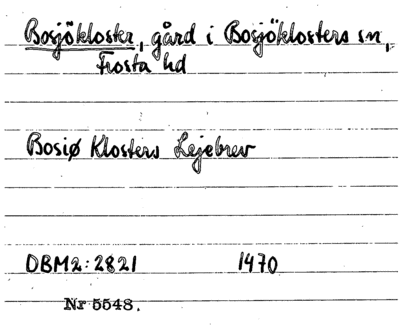 Bosjökloster, gård i Bosjöklosters sn,
Frosta hd
Bosiø Klosters Lejebrev
DBM2:2821 1470
Nr 5548.